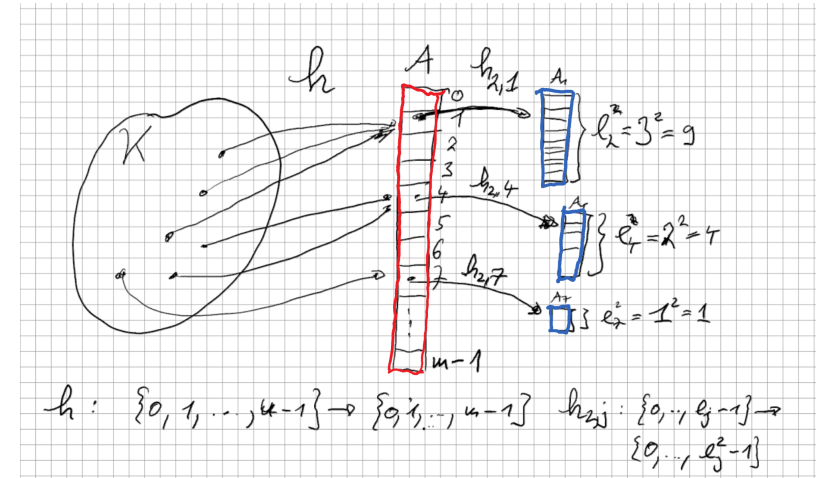 h A h₂,₁ A₁
K
0
1
2
3
4
5
6
7
m-1
l₂² = 3² = 9
h₂,4 A₄
l₄² = 2² = 4
h₂,7 A₇
l₇² = 1² = 1
h : {0, 1, ..., u-1} → {0, 1, ..., m-1} h₂,j : {0, .., lj-1} →
{0, .., lj²-1}